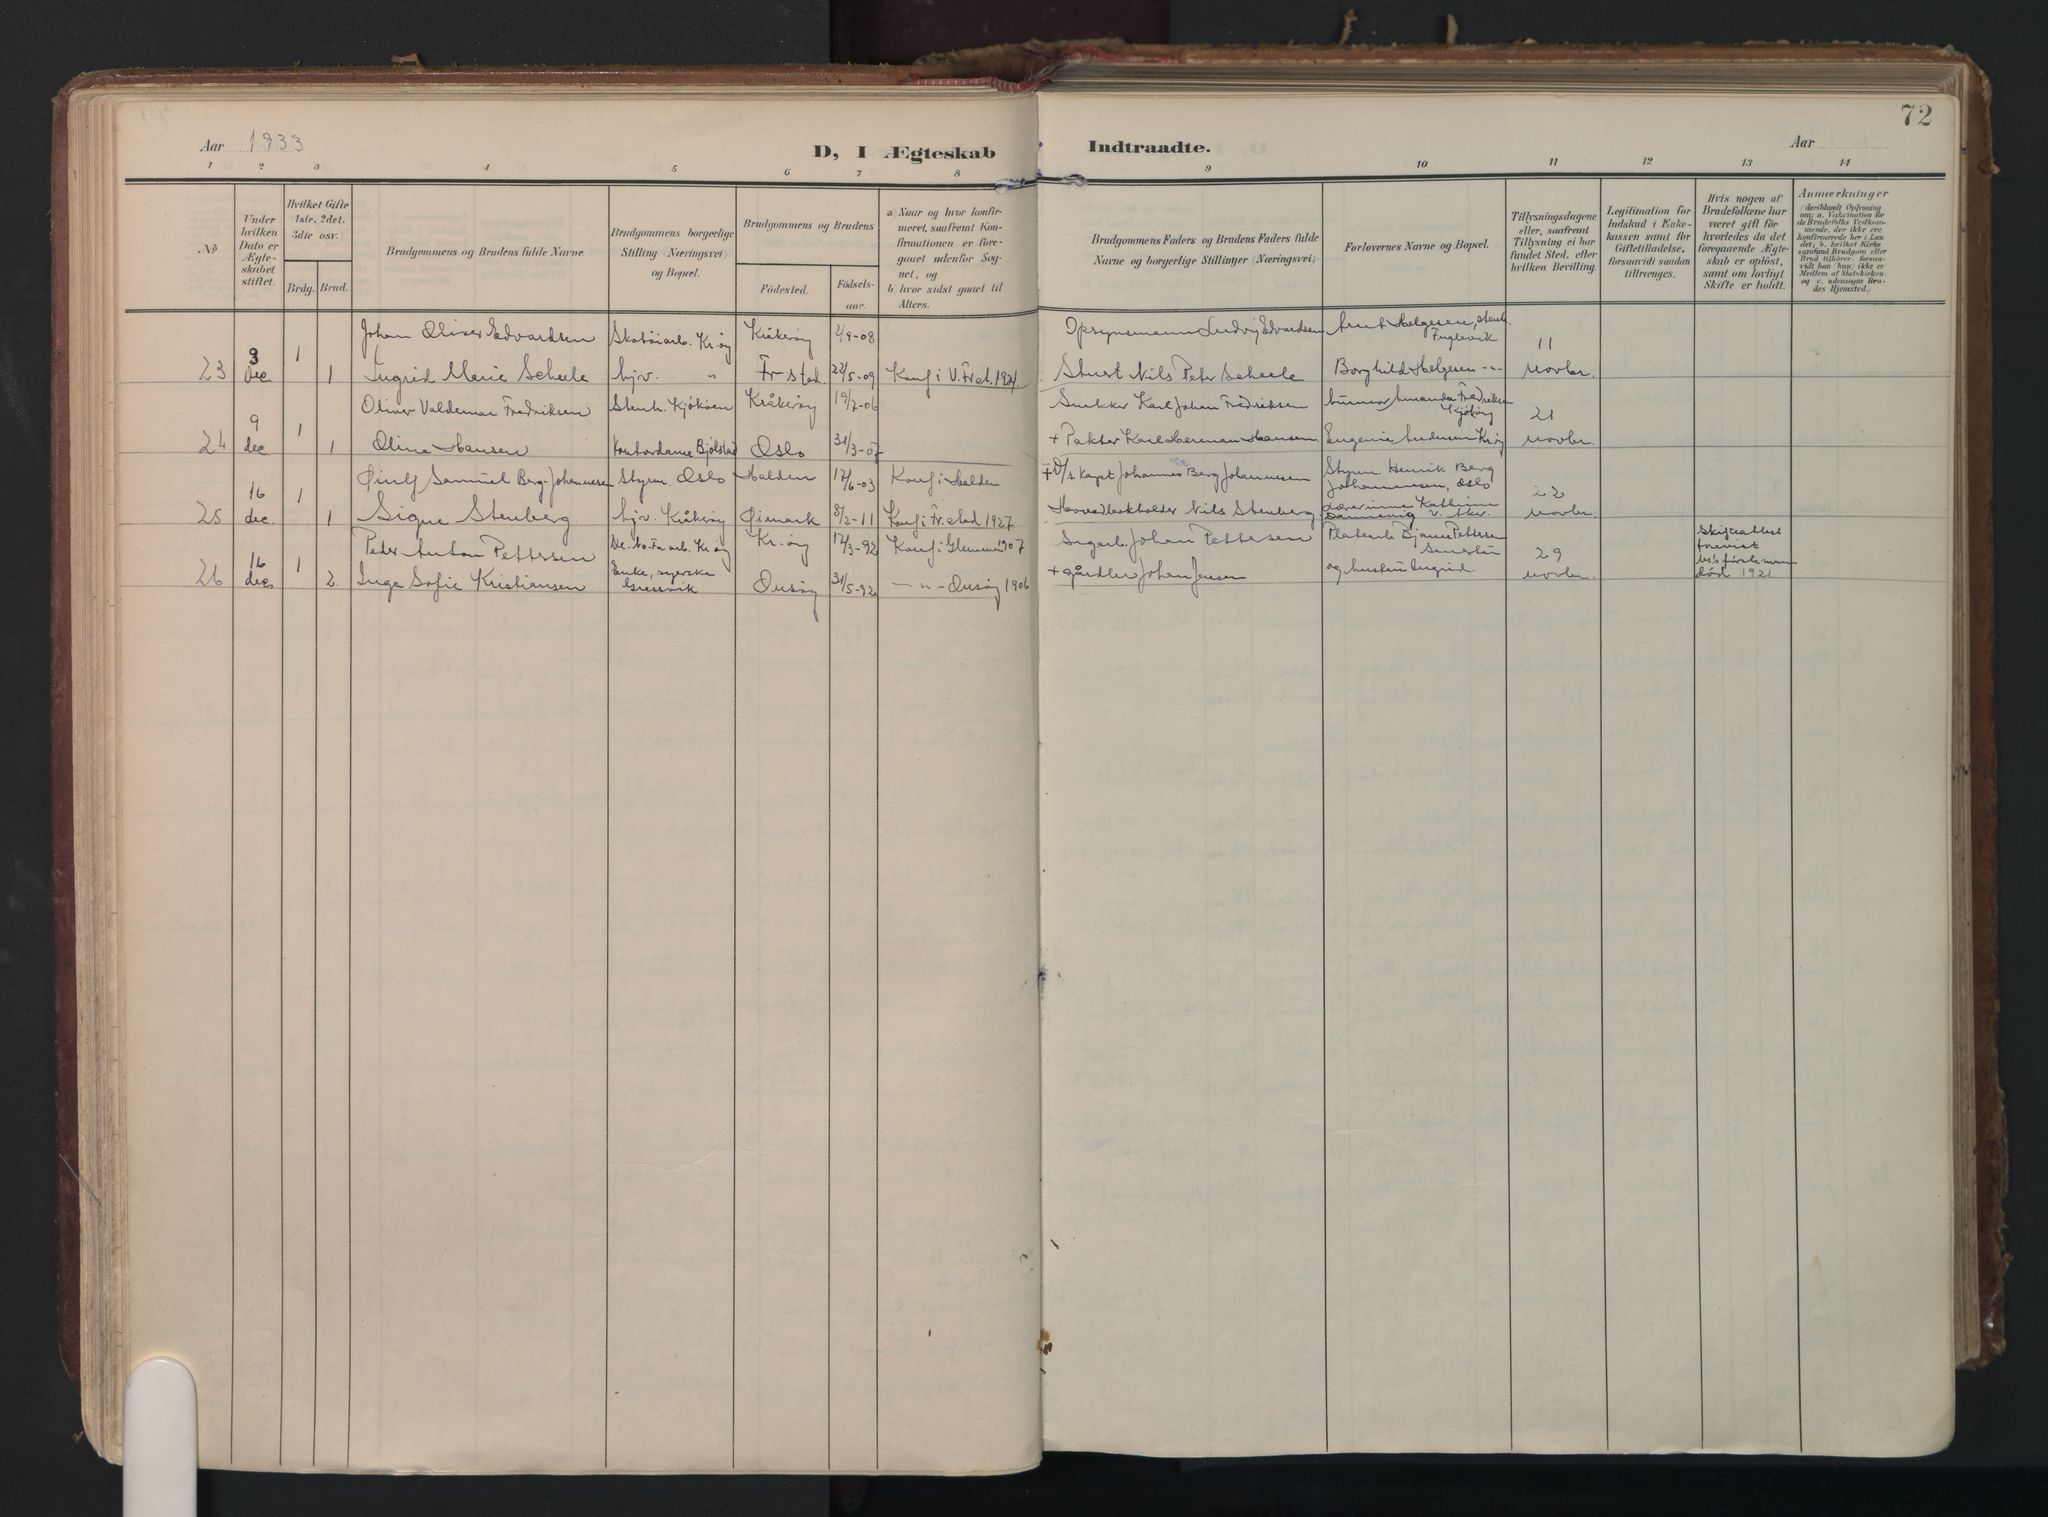 72
Aar 1933
D, I Ægteskab
Indtraadte.
Aar
1 2 3 4 5 6 7 8
9 10 11 12 13 14
No
Under hvilken Dato er Ægteskabet stiftet.
Hvilket Gifte 1ste. 2det. 3die osv.)
Brdg. Brud.
Brudgommens og Brudens fulde Navne
Brudgommens borgerlige Stilling (Næringsvei) og Bopæl.
Brudgommens og Brudens
Födested.
Födselsaar.
a) Naar og hvor konfirmeret, saafremt Konfirmationen er foregaaet udenfor Sognet, og
b) hvor sidst gaaet til Alters.
Brudgommens Faders og Brudens Faders fulde Navne og borgerlige Stillinger (Næringsvei)
Forlovernes Navne og Bopæl.
Tillysningsdagene eller, saafremt Tillysning ei har fundet Sted, efter hvilken Bevilling.
Legitimation for Indskud i Enkekassen samt for Giftetilladelse, forsaavidt saadan tiltrænges.
Hvis nogen af Brudefolkene har været gift för hvorledes da det foregaaende Ægteskab er oplöst, samt om lovligt Skifte er holdt.
Anmærkninger
(deriblandt Oplysning om: a. Vakcination for de Brudefolks Vedkommende, der ikke ere konfirmerede her i Landet; b. hvilket Kirkesamfund Brudgom eller Brud tilhörer, forsaavidt han (hun) ikke er Medlem af Statskirken, og c. udensogns Brudes Hjemsted.)
Johan Oliver Edvardsen Skotöiarb. Kr.øy Kråkerøy 2/9-08 Opsynsmann Ludvig Edvardsen Arnt Helgesen, stenh. Fuglevik
23 3 Dec 1 1 Ingrid Marie Scheele hjv. " Fr-stad. 22/5-09 Konf i V. Fr.st. 1924. Stuert Nils Peter Scheele Borghild Helgesen -"- 11 novbr.
Oliver Valdemar Fredriksen Stenh. Kjøkøen Kråkerøy 19/7-06 Snekker Karl Johan Fredriksen Amanda Fredriksen Kjøkøy
24 9 dec. 1 1 Oline Hansen Kontordame Bjølstad Oslo 31/3-07 + Pakter Karl Herman Hansen Eugenie Andersen Krøy 21 novbr.
Øiulf Samuel Berg-Johannesen Styrm. Oslo Halden 17/6-03 Konf i Halden + D/s kapt Johannes Berg Johannesen Styrm. Henrik Berg Johannessen, Oslo
25 16 dec. 1 1 Signe Stenberg. hjv. Kråkerøy Øimark 8/2-11 Konf i Fr.stad 1927 Hovedbokholder Nils Stenberg. Lærerinne Kathrine Dannevig V. Aker. 22 novbr.
Peder Anton Pettersen De-No-Fa arb. Kr.øy Kr.øy 17/3-92 Konf i Glemmen 1907 Sagarb. Johan Pettersen Platearb. Bjarne Pettersen
26 16 dec 1 2. Inga Sofie Kristiansen Enke, syerske Gressvik Onsøy 31/5-92 -"- Onsøy 1906 + gårdbr Johan Jensen og hustru Ingrid. 29 novbr. Skifteattest forevist förste mann död 1921